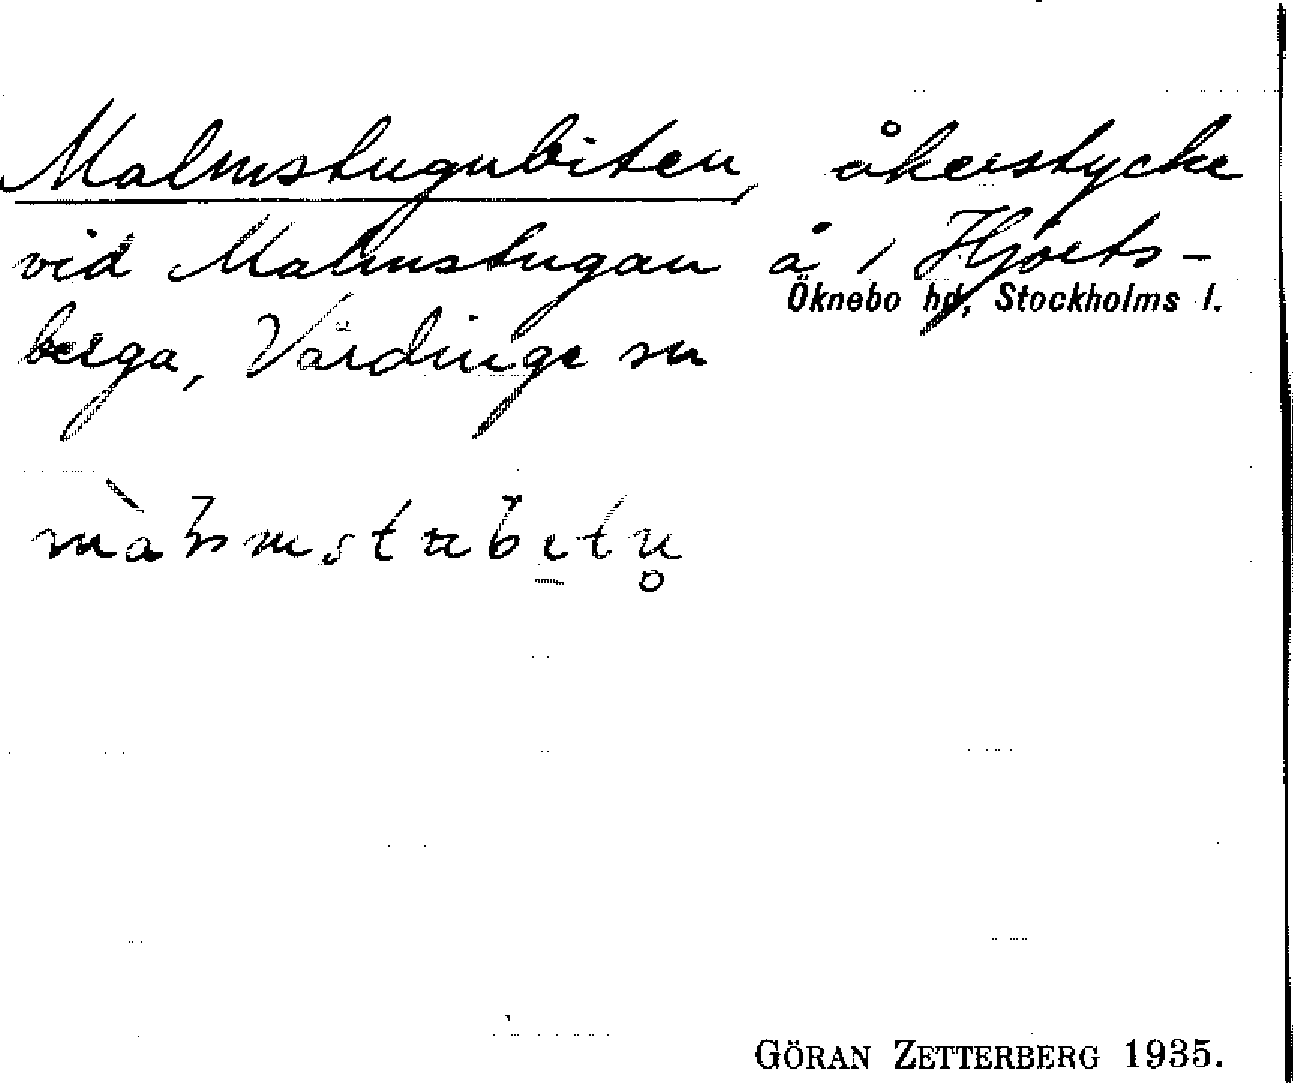 Malmstugubiten, åkerstycke
vid Malmstugan å 1 Hjorts-
Öknebo hd, Stockholms l.
berga, Vårdinge sn
GÖRAN ZETTERBERG 1935.